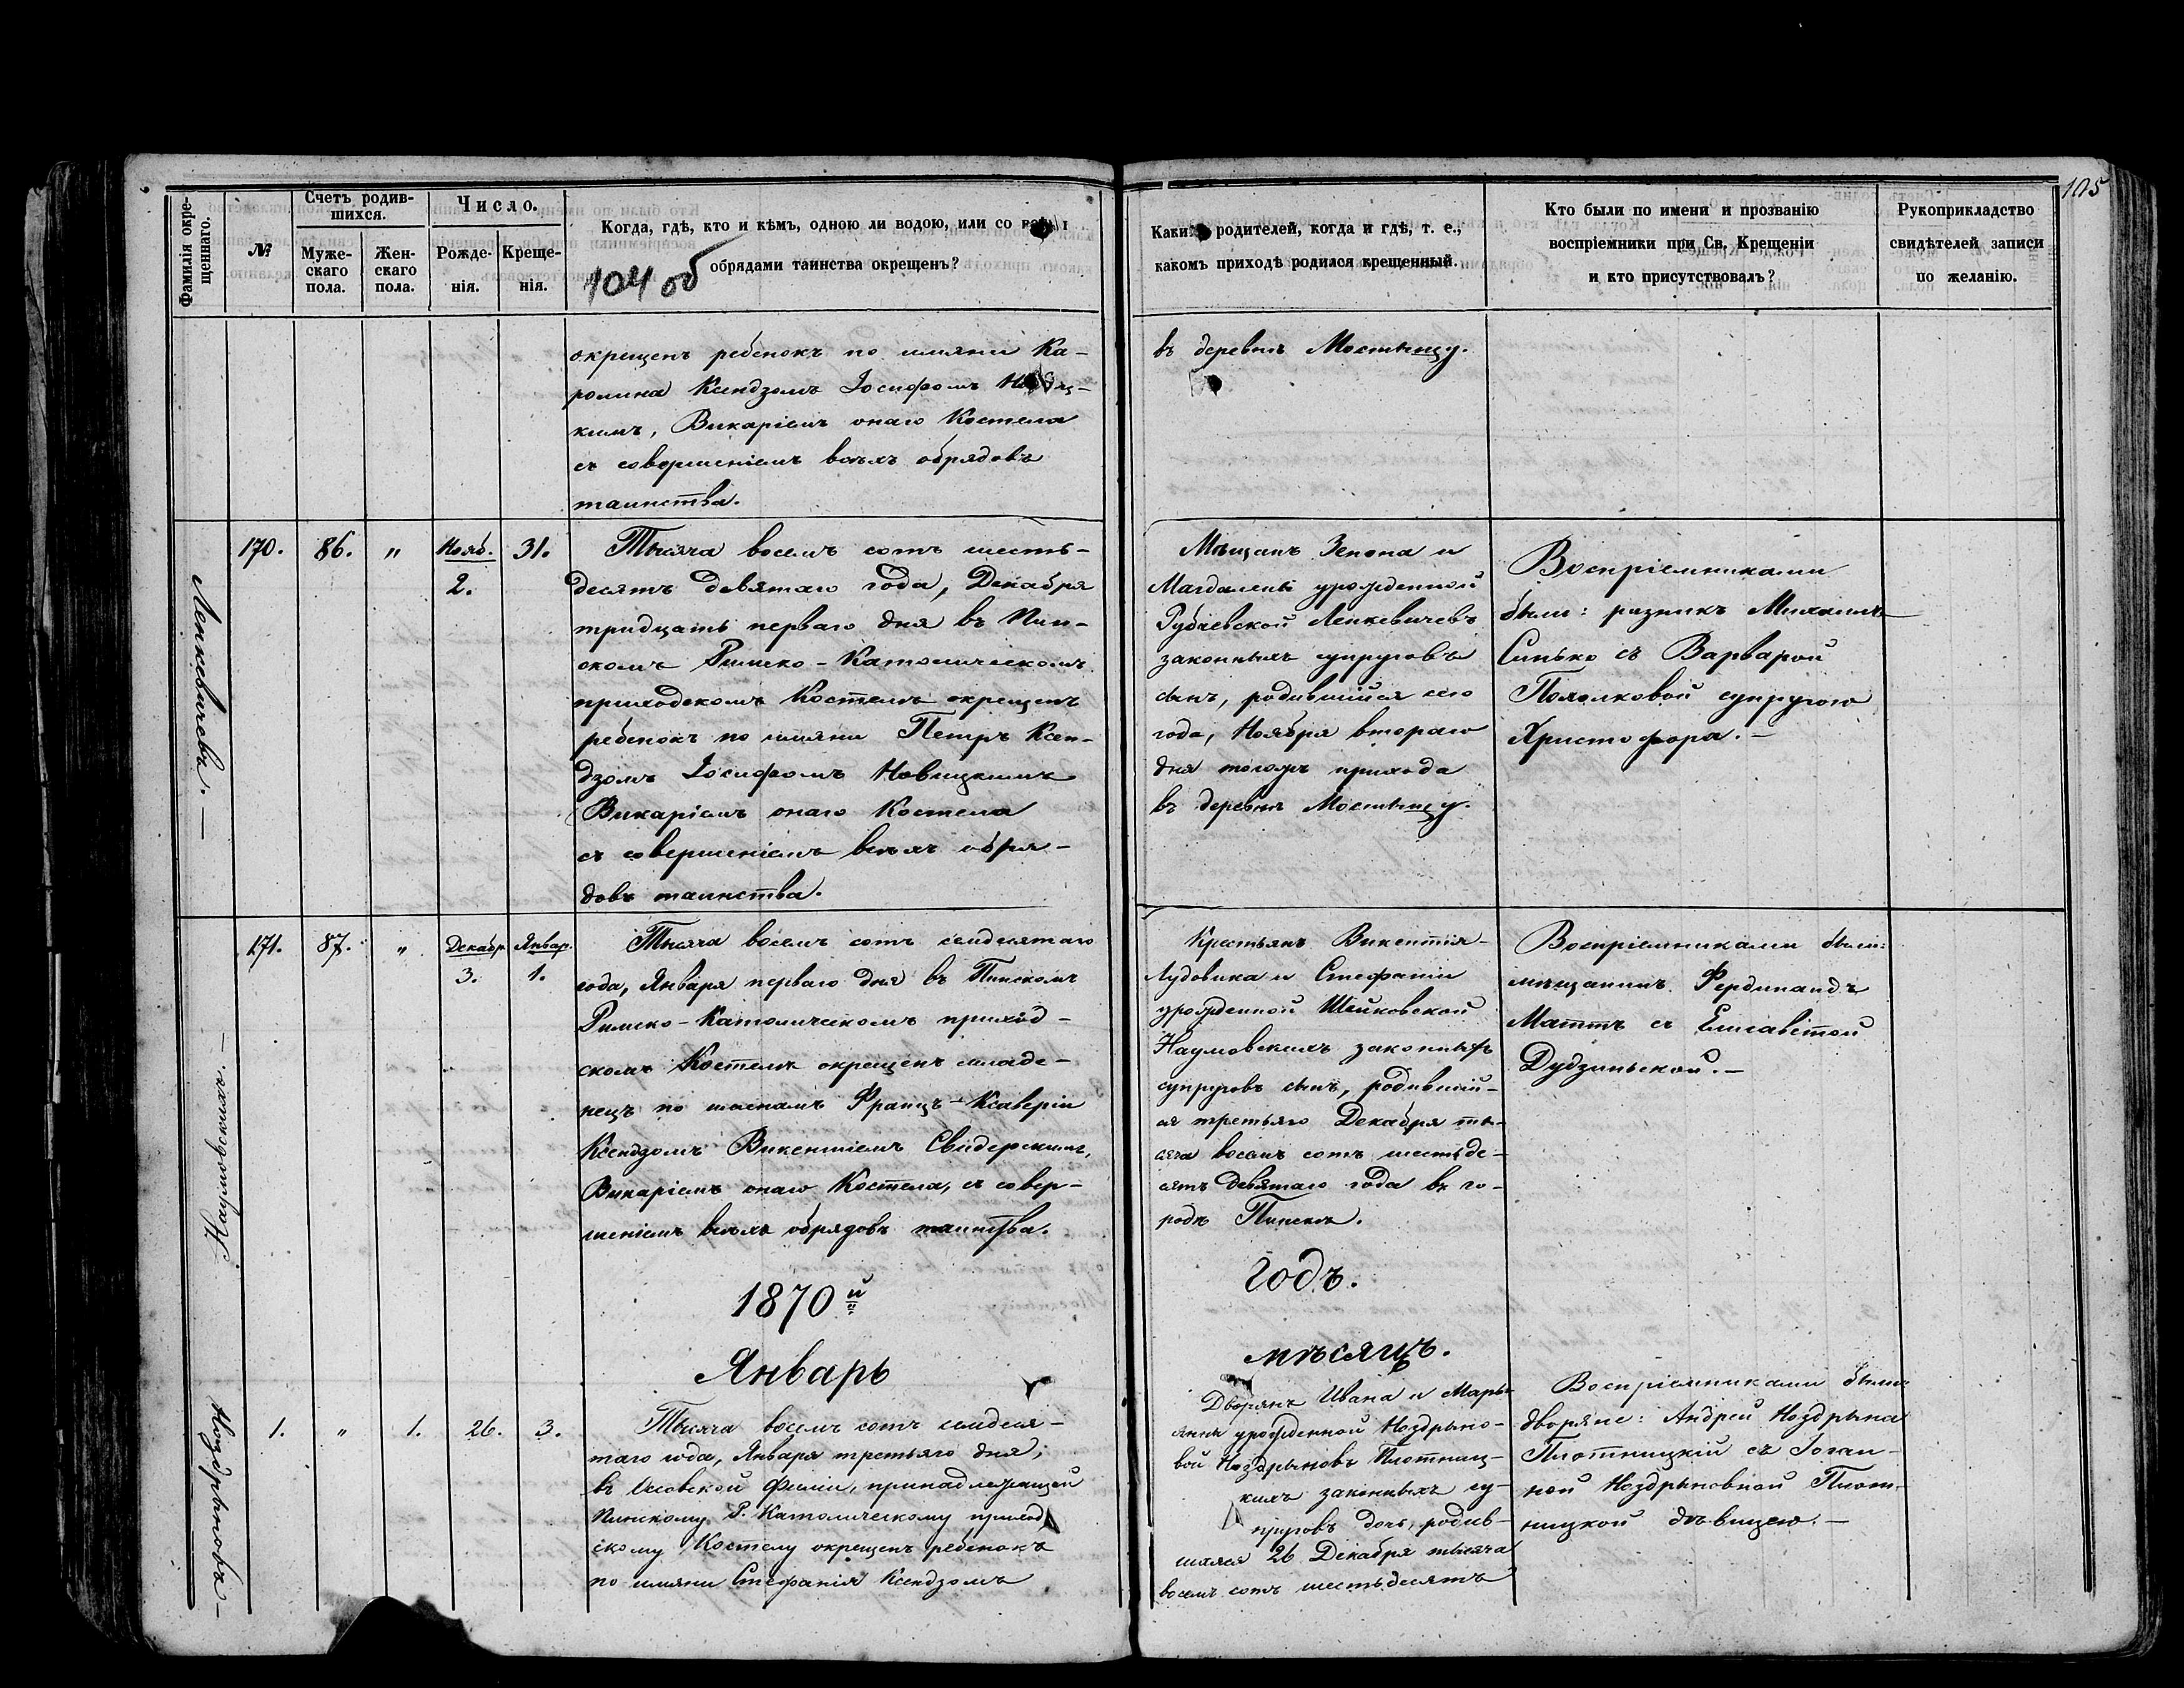 105
Фамилія окре-
щеннаго.
№
Счетъ родив-
шихся.
Муже-
скаго
пола.
Жен-
скаго
пола.
Число.
Рожде-
нія.
Креще-
нія.
Когда, гдѣ, кто и кѣмъ, одною ли водою, или со
обрядами таинства окрещенъ?
104 об
Какихъ родителей, когда и гдѣ, т. е.,
какомъ приходѣ родился крещенный.
Кто были по имени и прозванію
воспріемники при Св. Крещеніи
и кто присутствовалъ?
Рукоприкладство
свидѣтелей записи
по желанію.
окрещенъ ребенокъ по имяни Ка-
ролина Ксендзомъ Іосифомъ
кимъ, Викаріемъ онаго Костела
съ совершеніемъ всѣхъ обрядовъ
таинства.
въ деревнѣ Мостыщу.
Ленкевичевъ. —
170.
86.
"
Нояб.
2.
31.
Тысяча восемь сотъ шесть-
десятъ девятаго года, Декабря
тридцать перваго дня въ Пин-
скомъ Римско-Католическомъ
приходскомъ Костелѣ окрещенъ
ребенокъ по имяни Петръ Ксен-
дзомъ Іосифомъ Новицкимъ
Викаріемъ онаго Костела
съ совершеніемъ всѣхъ обря-
довъ таинства.
Мѣщанъ Зенона и
Магдалены урожденной
Рубаевской Ленкевичевъ
законныхъ супруговъ
сынъ, родившійся сего
года, Ноября втораго
дня тогожъ прихода
въ деревнѣ Мостыщу.
Воспріемниками
были: Михаилъ
Синько съ Варварой
супругою
Христофора. —
Наумовскихъ. —
171.
87.
"
Декабр
3.
Январ.
1.
Тысяча восемь сотъ семдесятаго
года, Января перваго дня въ Пинскомъ
Римско-Католическомъ приход-
скомъ Костелѣ окрещенъ младе-
нецъ по именамъ Францъ-Ксаверій
Ксендзомъ Викентіемъ Свидерскимъ,
Викаріемъ онаго Костела, съ совер-
шеніемъ всѣхъ обрядовъ таинства.
Крестьянъ Викентія-
Лудовика и Стефаніи
урожденной Шейковской
Наумовскихъ законныхъ
супруговъ сынъ, родившій-
ся третьяго Декабря ты-
сяча восемь сотъ шестьде-
сятъ девятаго года въ го-
родѣ Пинскѣ.
Воспріемниками были:
мѣщанинъ Фердинандъ
Маттъ съ Елисаветой
Дудзинской. —
1870й
годъ.
Январь
мѣсяцъ.
Ноздрыновъ —
1.
"
1.
26.
3.
Тысяча восемь сотъ семдеся-
таго года, Января третьяго дня,
въ филіи, принадлежащей
Пинскому Р. Католическому приход
скому Костелу окрещенъ ребенокъ
по имяни Стефанія Ксендзомъ
Дворянъ Ивана и Марь-
янны урожденной Ноздрыно-
вой Ноздрыновъ Плотниц-
кихъ законныхъ су-
пруговъ дочь, родив-
шаяся 26 Декабря тысяча
восемь сотъ шестьдесятъ
Воспріемниками были
дворяне: Андрей Ноздрына
Плотницкій съ Іоган-
ной Ноздрыновной Плот-
ницкой дѣвицею. —